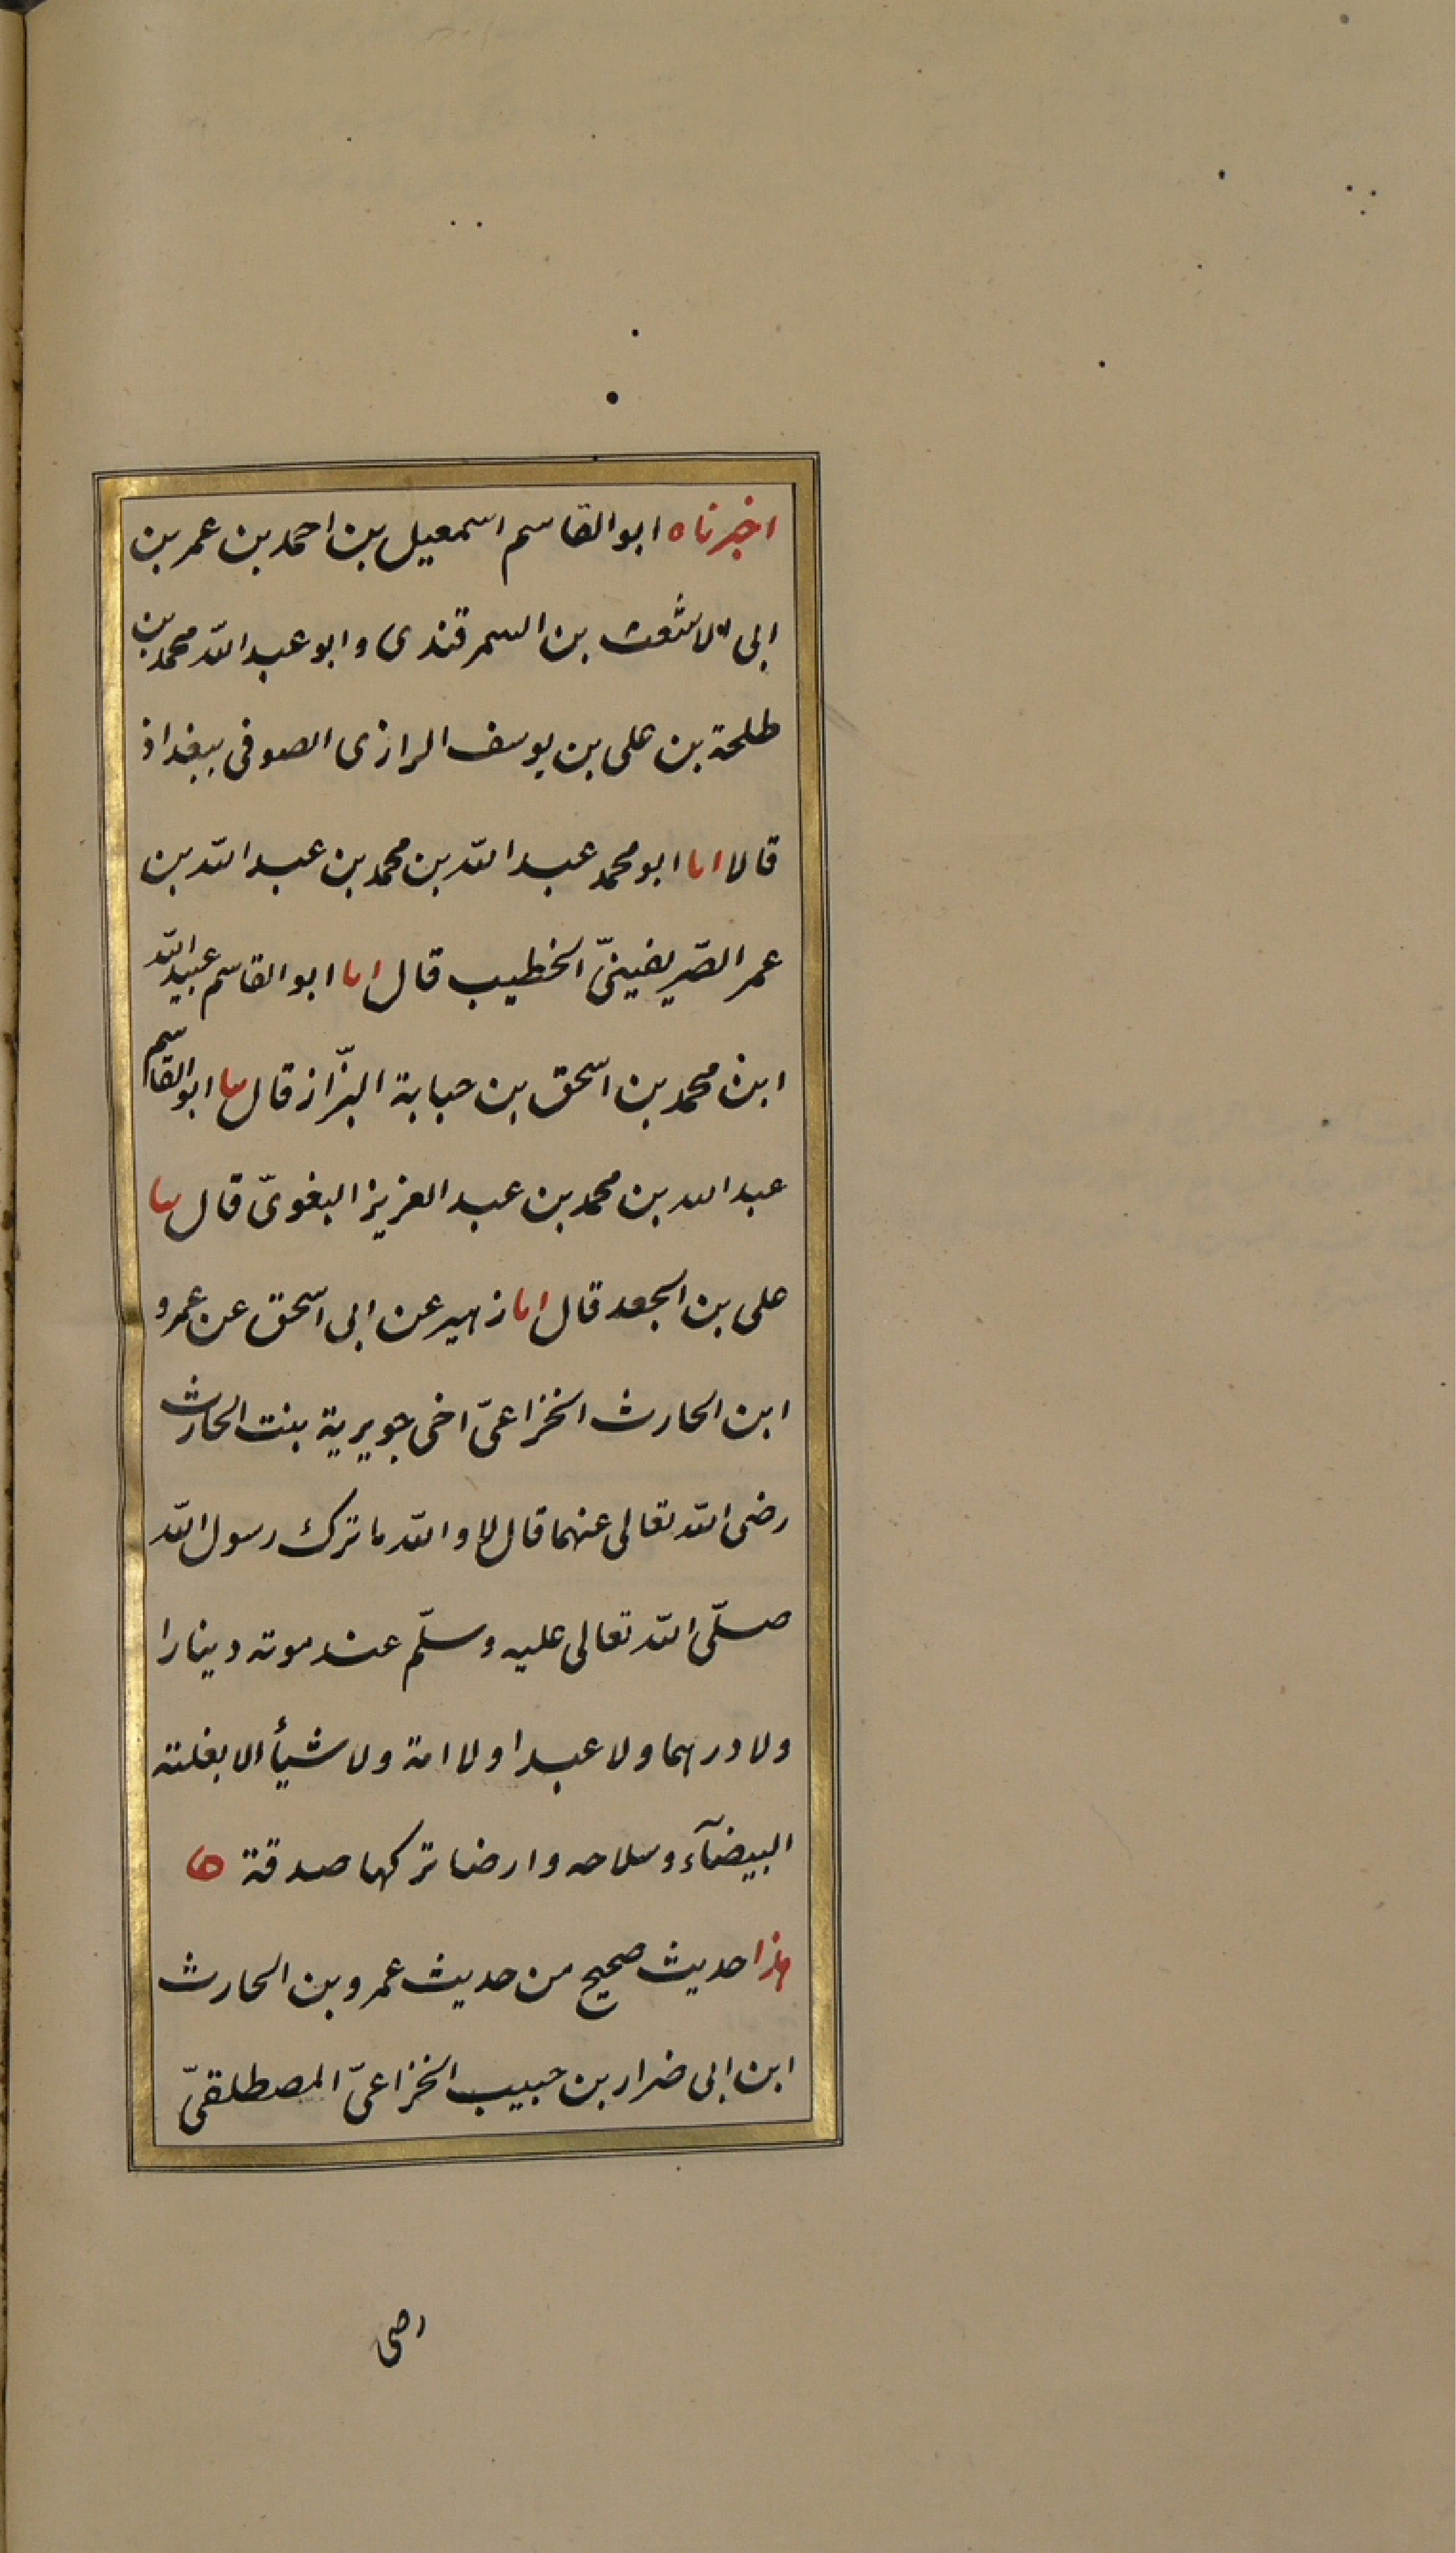 اخبرناه ابو القاسم اسمعيل بن احمد بن عمر بن
ابى الاشعث بن السمرقندى وابو عبد الله محمد بن
طلحة بن على بن يوسف الرازى الصوفى ببغداذ
قالا انا ابو محمد عبد الله بن محمد بن عبد الله بن
عمر الصّريفينىّ الخطيب قال انا ابو القاسم عبيد الله
ابن محمد بن اسحق بن حبابة البزّاز قال ثنا ابو القاسم
عبد الله بن محمد بن عبد العزيز البغوىّ قال ثنا
على بن الجعد قال انا زهير عن ابى اسحق عن عمرو
ابن الحارث الخزاعىّ اخى جويرية بنت الحارث
رضى الله تعالى عنهما قال لا والله ما ترك رسول الله
صلّى الله تعالى عليه وسلّم عند موته دينارا
ولا درهما ولا عبدا ولا امة ولا شيأ الا بغلته
البيضآء وسلاحه وارضا تركها صدقة ه
هذا حديث صحيح من حديث عمرو بن الحارث
ابن ابى ضرار بن حبيب الخزاعىّ المصطلقىّ